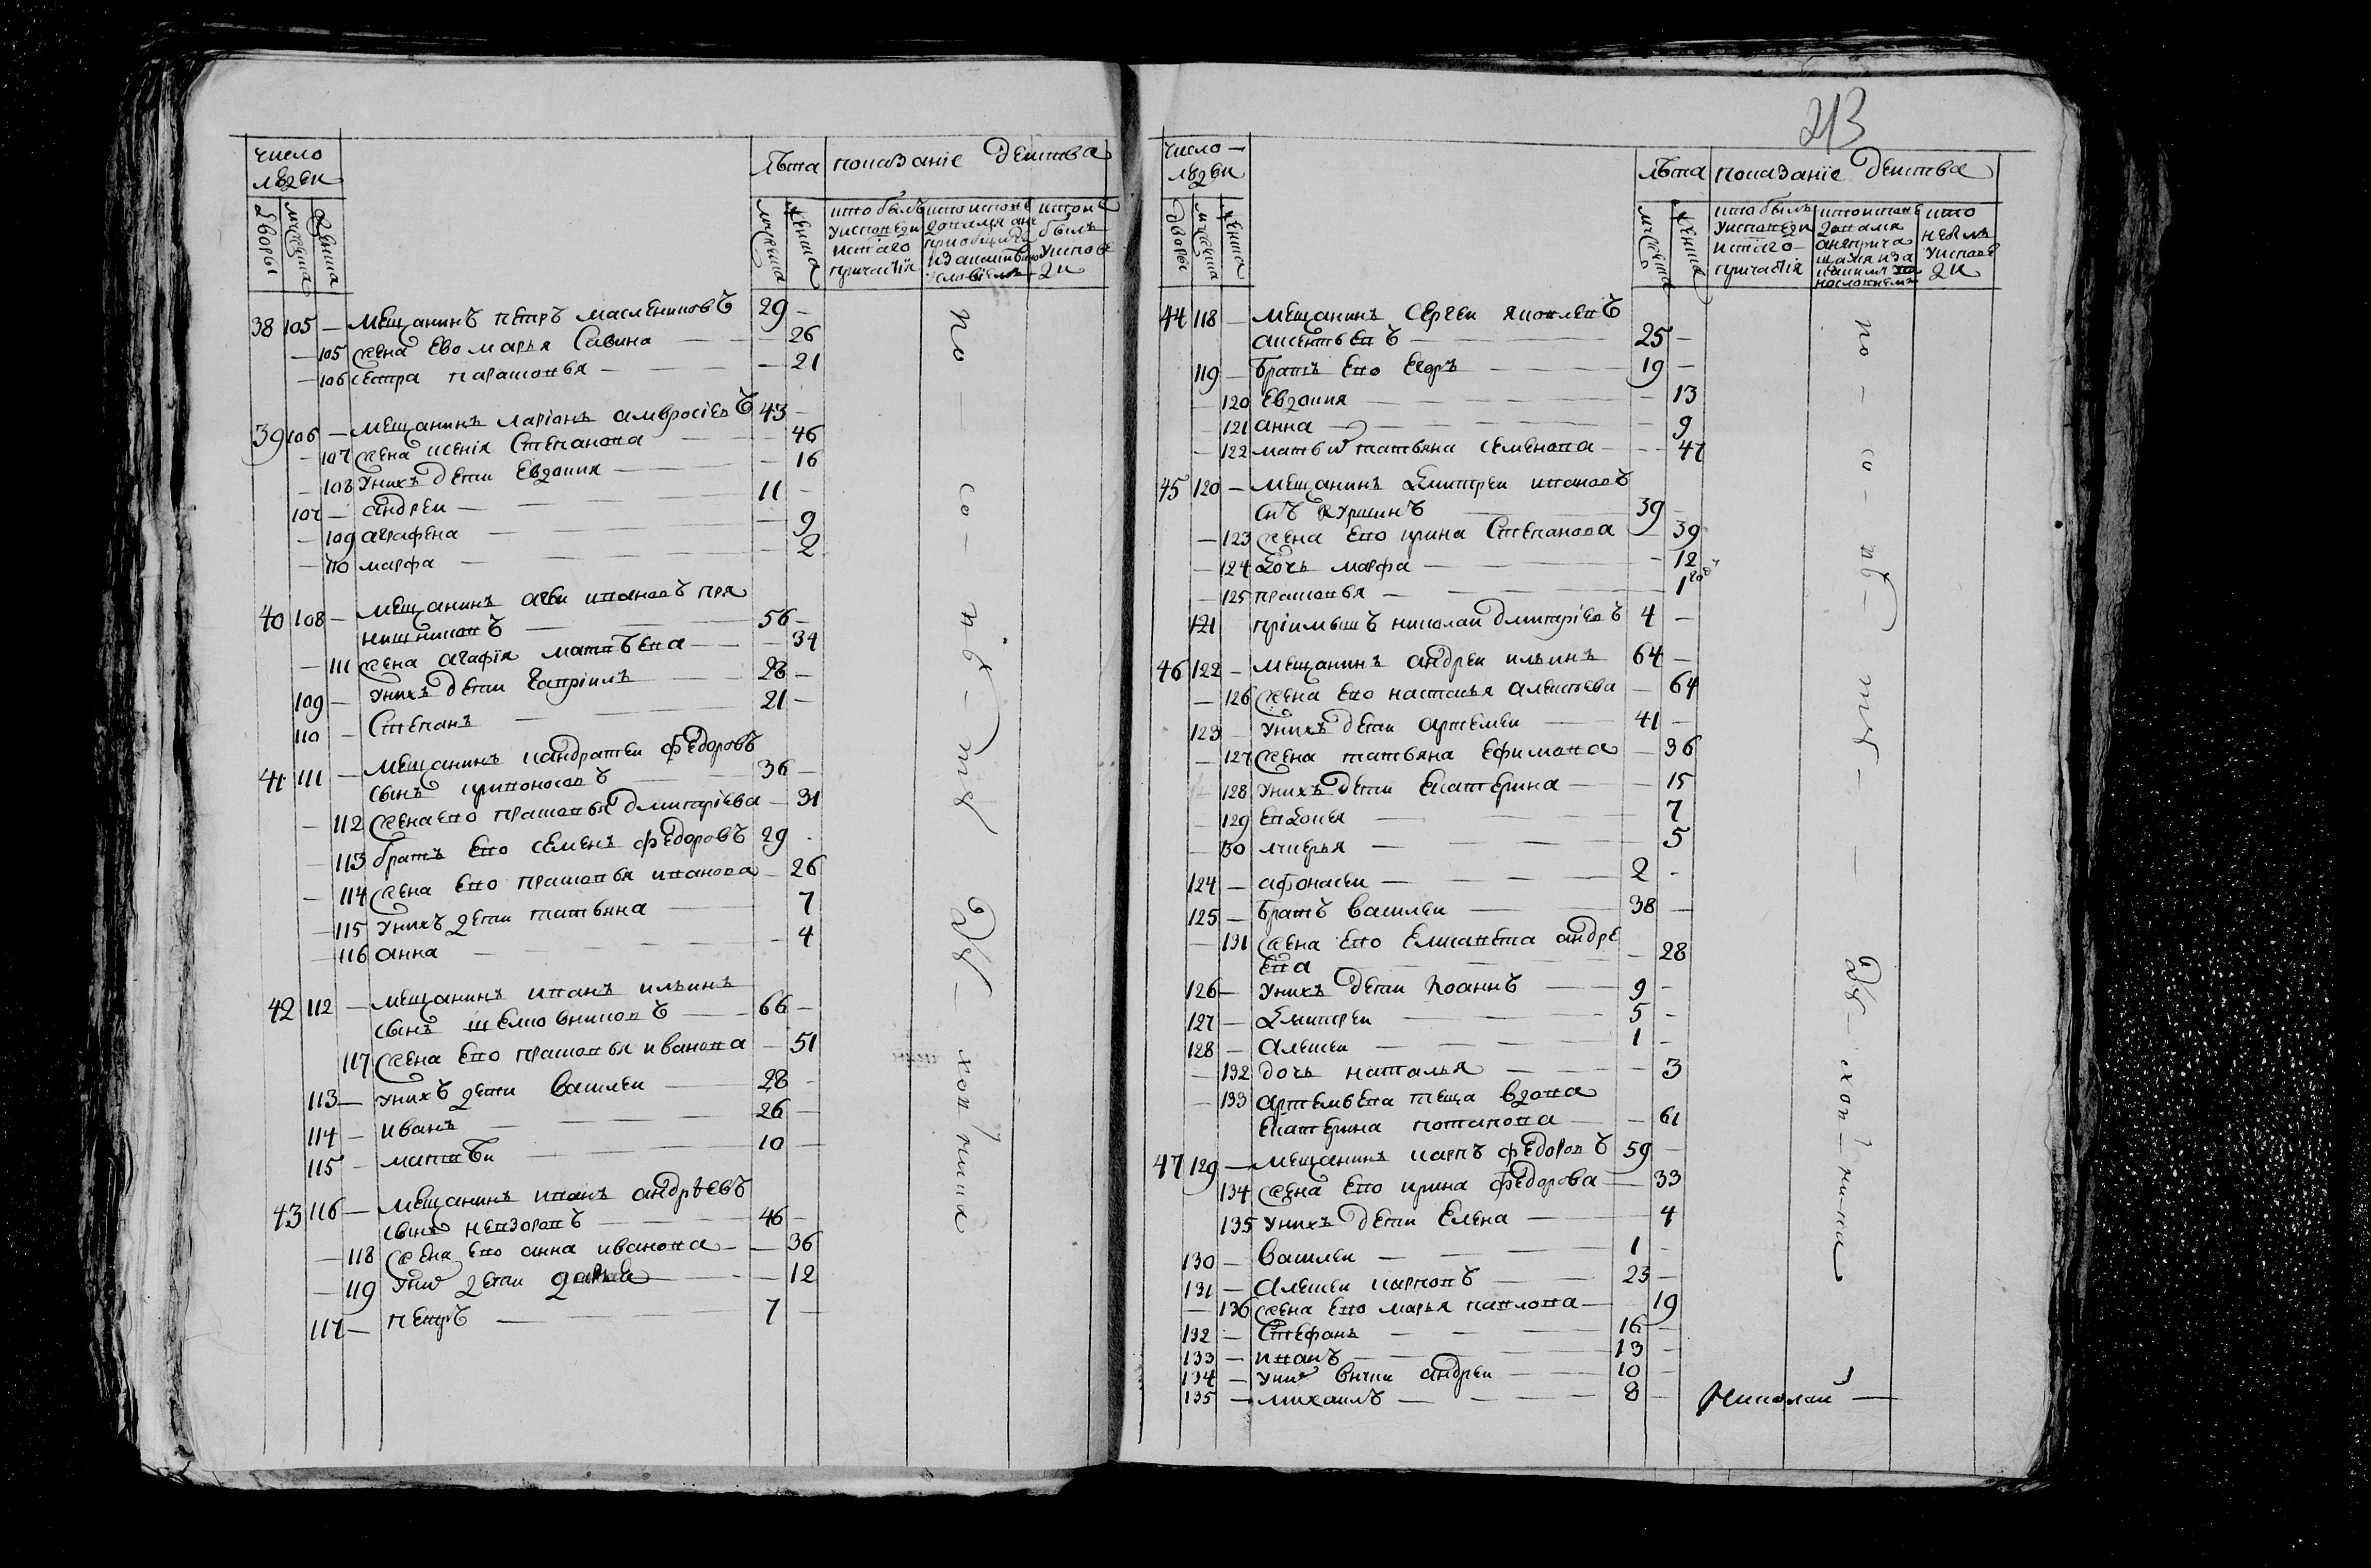 число людей
лѣта показаніе действа
дворы мужеска женска
мужеска женска
кто былъ у исповеди и стаго причастія
кто былъ
38 105 — мещанинъ петръ маслениковъ 29 —
— 105 жена ево марья Савина — 26
— 106 сестра парасковья — 21
39 106 — мещанинъ ларіонъ амвросіевъ 43 —
— 107 жена ксенія Степанова — 46
— 108 у нихъ дети Евдокия — 16
107 — андреи — 11 —
— 109 аграфена — 9
— 110 марфа — 2
40 108 — мещанинъ агеи ивановъ пря
нишниковъ — 56 —
— 111 жена агафія матвѣева — 34
109 — у нихъ дети Гавріилъ — 28 —
110 — Степанъ — 21 —
41 111 — мещанинъ кандратеи федоровъ
сынъ кривоносовъ — 36 —
— 112 жена ево прасковья дмитріева — 31
— 113 братъ ево семенъ федоровъ 29 —
— 114 жена ево прасковья иванова — 26
— 115 у нихъ дети татьяна — 7
— 116 анна — 4
42 112 — мещанинъ иванъ ильинъ
сынъ шелковниковъ — 66 —
117 жена ево прасковья иванова — 51
113 — у нихъ дети василеи — 28 —
114 — иванъ — 26 —
115 — матвѣи — 10 —
43 116 — мещанинъ иванъ андрѣевъ
сынъ невзоровъ — 46 —
— 118 жена ево анна иванова — 36
— 119 у них дети дарья — 12
117 — петръ — 7 —
по — со — ву — ту — ду — хов ника
213
число — людей
лѣта показаніе действа
дворы мужеска женска
мужеска женска
кто былъ у исповеди и стаго — причастія
44 118 — мещанинъ Сергеи яковлевъ
аксентьевъ — 25 —
119 — братъ ево Егоръ — 19 —
— 120 Евдокия — 13
— 121 анна — 9
— 122 мать их татьяна семенова — 47
45 120 — мещанинъ Дмитреи ивановъ
снъ куршинъ 39
— 123 жена ево ирина Степанова 39
— 124 дочь марфа — 12
— 125 прасковья — 1 год
121 пріимышъ николаи дмитріевъ 4 —
46 122 — мещанинъ андреи ильинъ 64 —
— 126 жена ево настасья алексѣева — 64
123 — у нихъ дети артемеи — 41 —
— 127 жена татьяна ефимова — 36
128 у нихъ дети Екатерина — 15
— 129 евдокея — 7
— 130 лукерья — 5
124 — афонасеи — 2 —
125 — братъ василеи — 38 —
— 131 жена ево Елисавета андре
ева — 28
126 — у нихъ дети Іоаннъ — 9 —
127 — Дмитреи — 5 —
128 — Алексеи — 1 —
— 132 дочь наталья — 3
— 133 артемьева теща вдова
Екатерина потапова — 61
47 129 — мещанинъ карпъ федоровъ 59 —
134 жена ево ирина федорова — 33
135 у нихъ дети Елена — 4
130 — василеи — 1 —
131 — Алексеи карповъ — 23 —
— 136 жена ево марья павлова — 19
132 — Стефанъ — 16 —
133 — иванъ — 13 —
134 — у них внуки андреи — 10 —
135 — михаилъ — 8 —
по — со — ву — ту — ду — хов — ника
Николай —